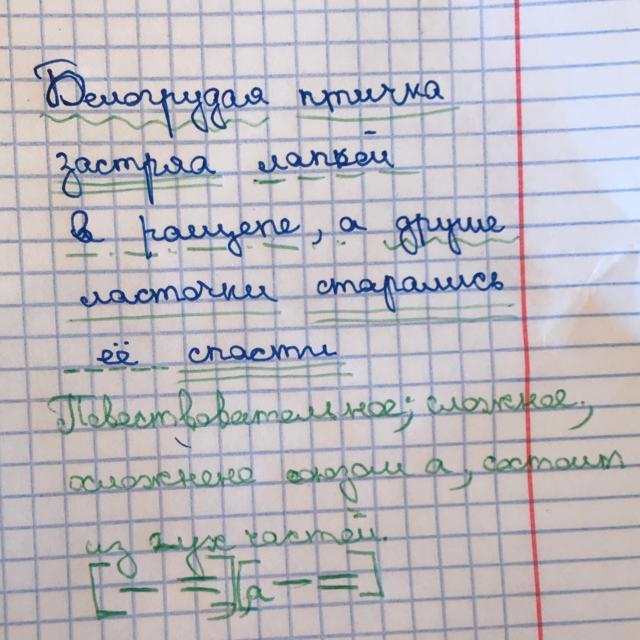 Белогрудая птичка
застряа лапкой
в ращепе, а другие
ласточки старались
её спасти
Повествовательное; сложное,
осложнено союзом а, состоит
из двух частей.
[— =][а — =]